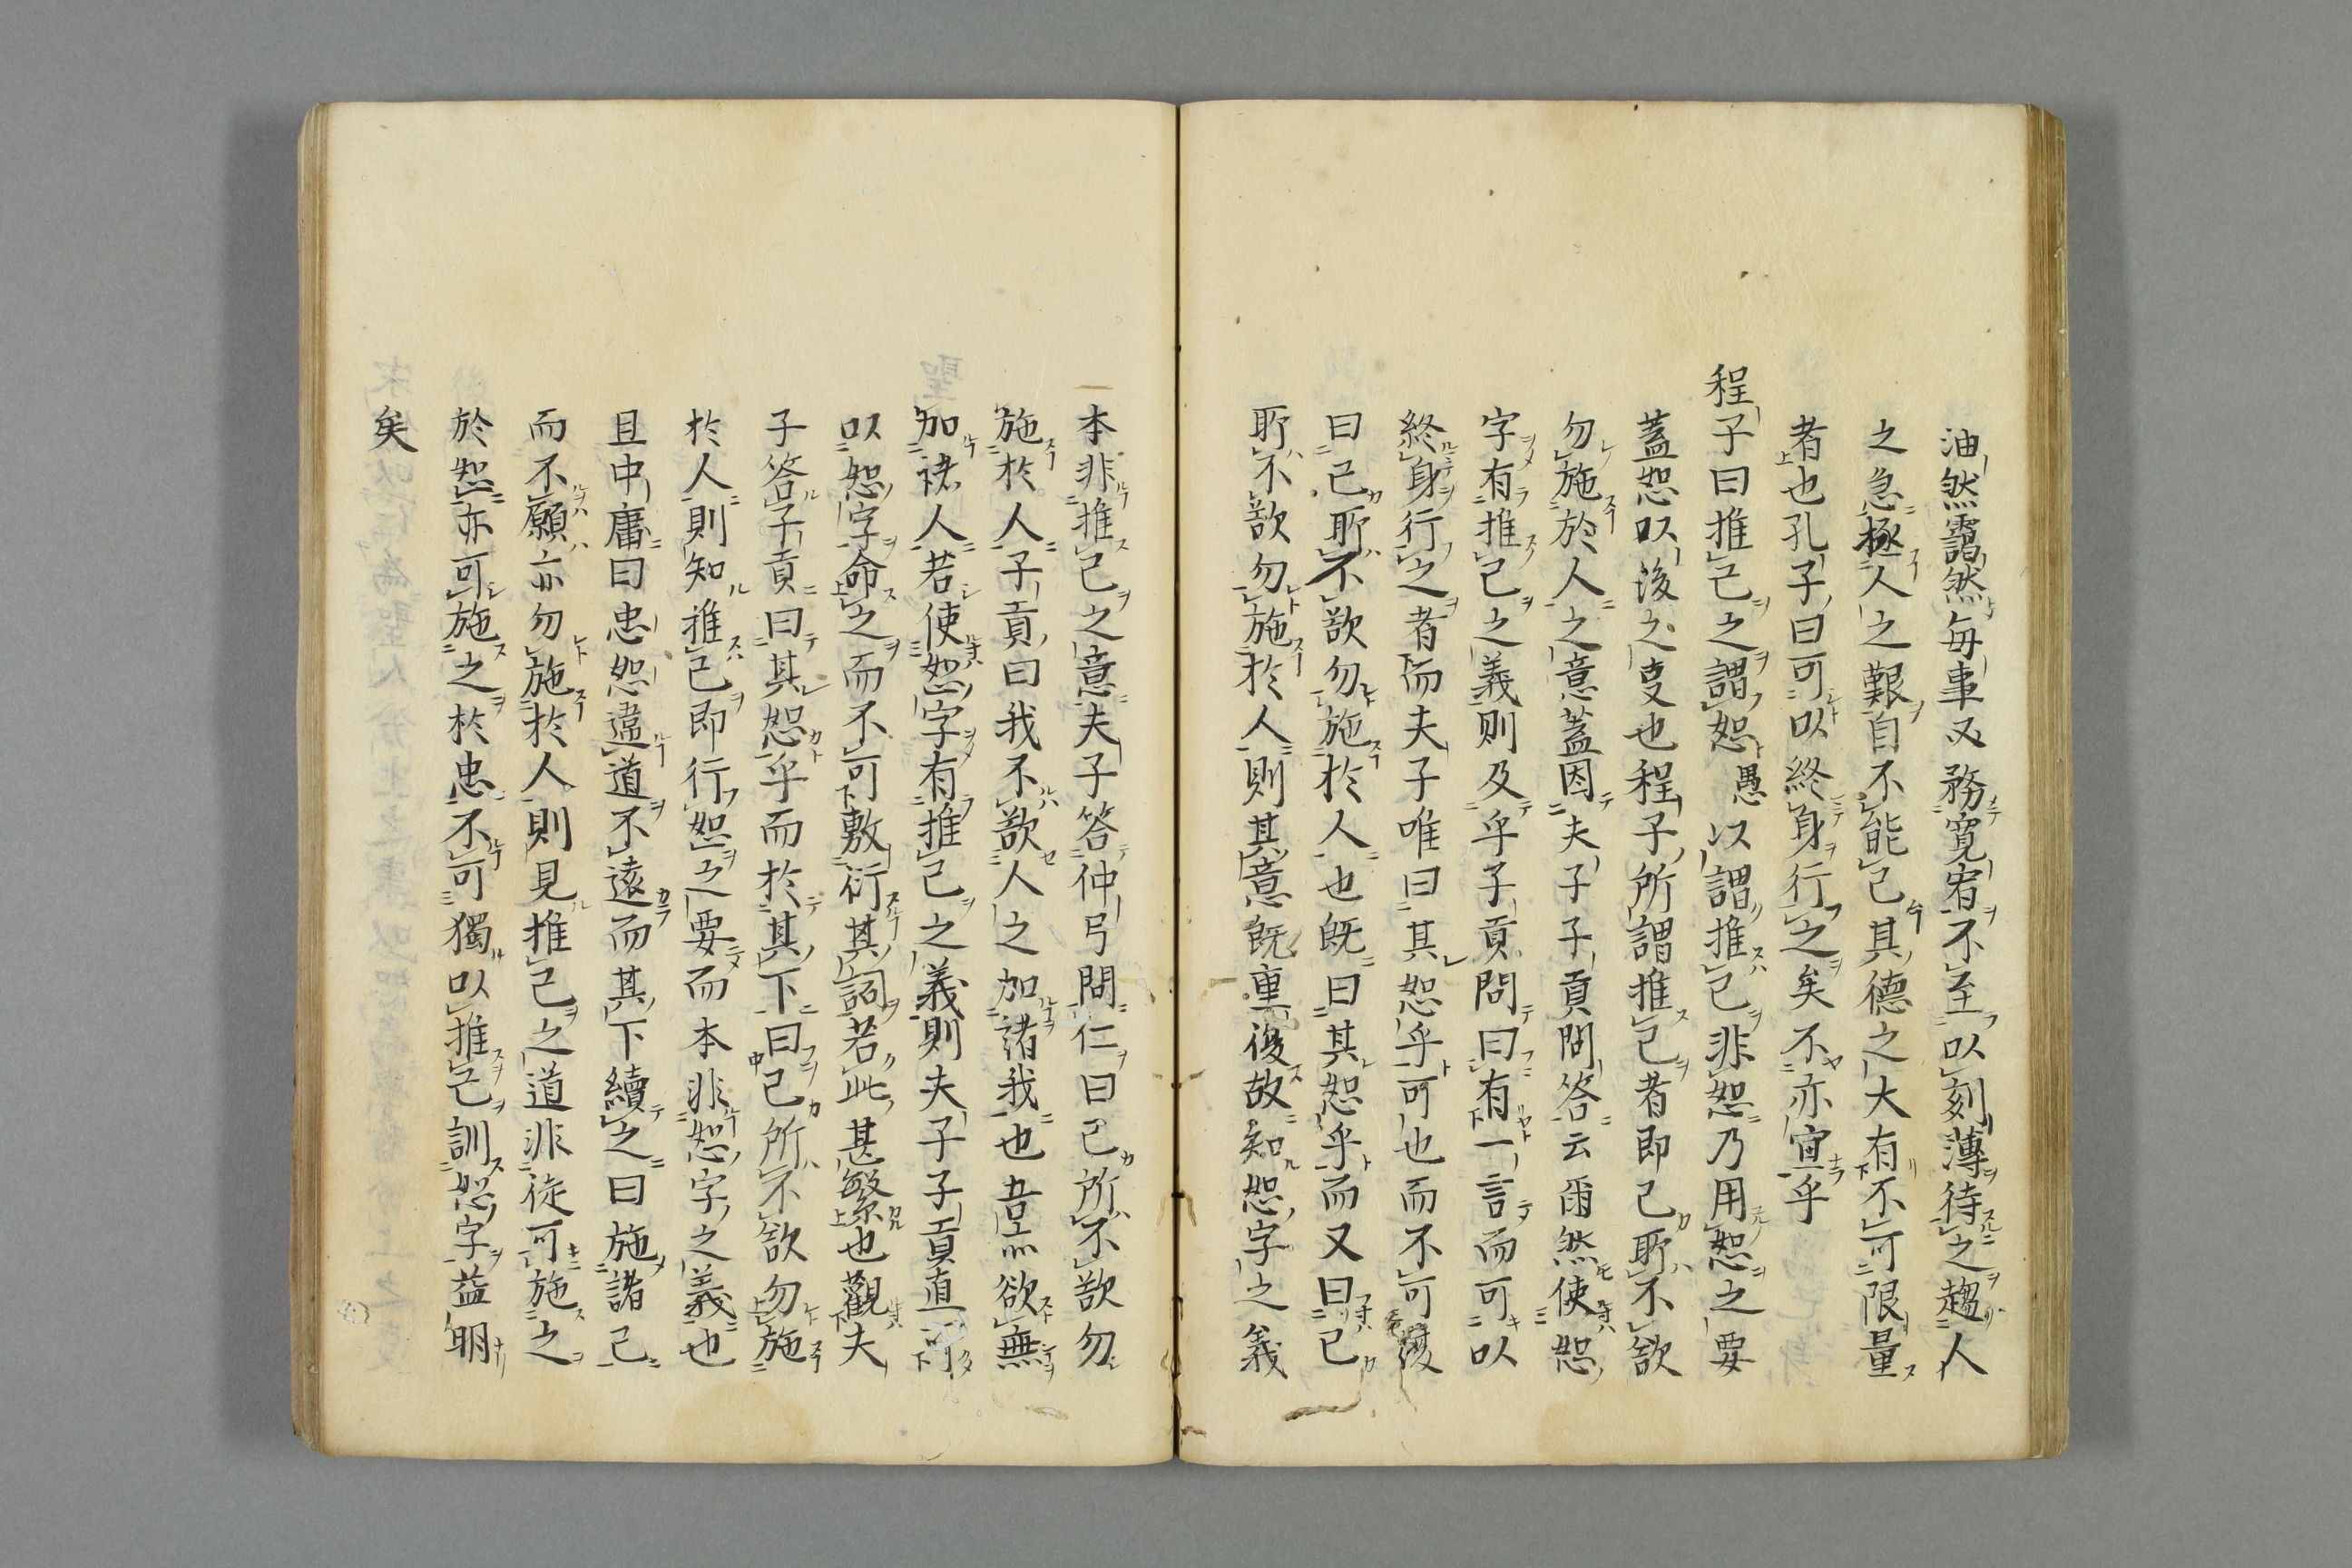 油然靄然毎事又務寛宥不至以刻薄待之趨人
之急極人之艱自不能已其德之大有不可限量
者也孔子曰可以終身行之矣不亦宜乎
程子曰推己之謂恕愚以謂推己非恕乃用恕之要
蓋恕以後之㕝也程子所謂推己者即己所不欲
勿施於人之意蓋因夫子子貢問答云爾然使恕
字有推己之義則及乎子貢問曰有一言而可以
終身行之者而夫子唯曰其恕乎可也而不可復
曰己所不欲勿施於人也既曰其恕乎而又曰己
所不欲勿施於人則其意既重復故知恕字之義
本非推己之意夫子答仲弓問仁曰己所不欲勿
施於人子貢曰我不欲人之加諸我也吾亦欲無
加諸人若使恕字有推己之義則夫子子貢直可
以恕字命之而不可敷衍其詞若此甚繁也觀夫
子答子貢曰其恕乎而於其下曰己所不欲勿施
於人則知推己即行恕之要而本非恕字之義也
且中庸曰忠恕違道不遠而其下續之曰施諸己
而不願亦勿施於人則見推己之道非徒可施之
於恕亦可施之於忠不可獨以推己訓恕字益明
矣